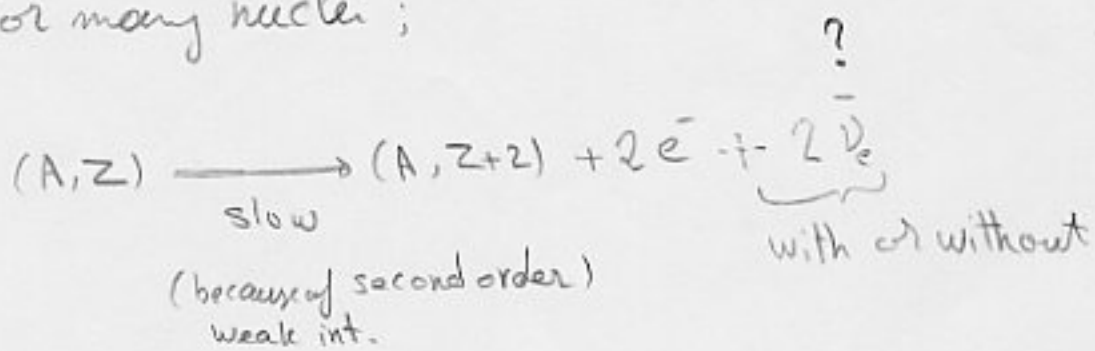 or many nuclei ;
?
(A,Z) ⟶ (A, Z+2) + 2e⁻ + 2ν̄ₑ
slow
with or without
(because of second order)
weak int.